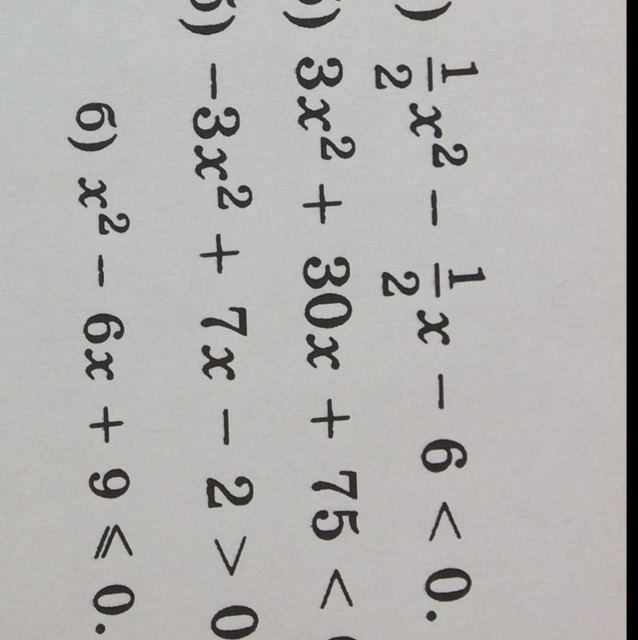 ) 1/2 x² − 1/2 x − 6 < 0.
) 3x² + 30x + 75 <
) −3x² + 7x − 2 > 0
6) x² − 6x + 9 ⩽ 0.